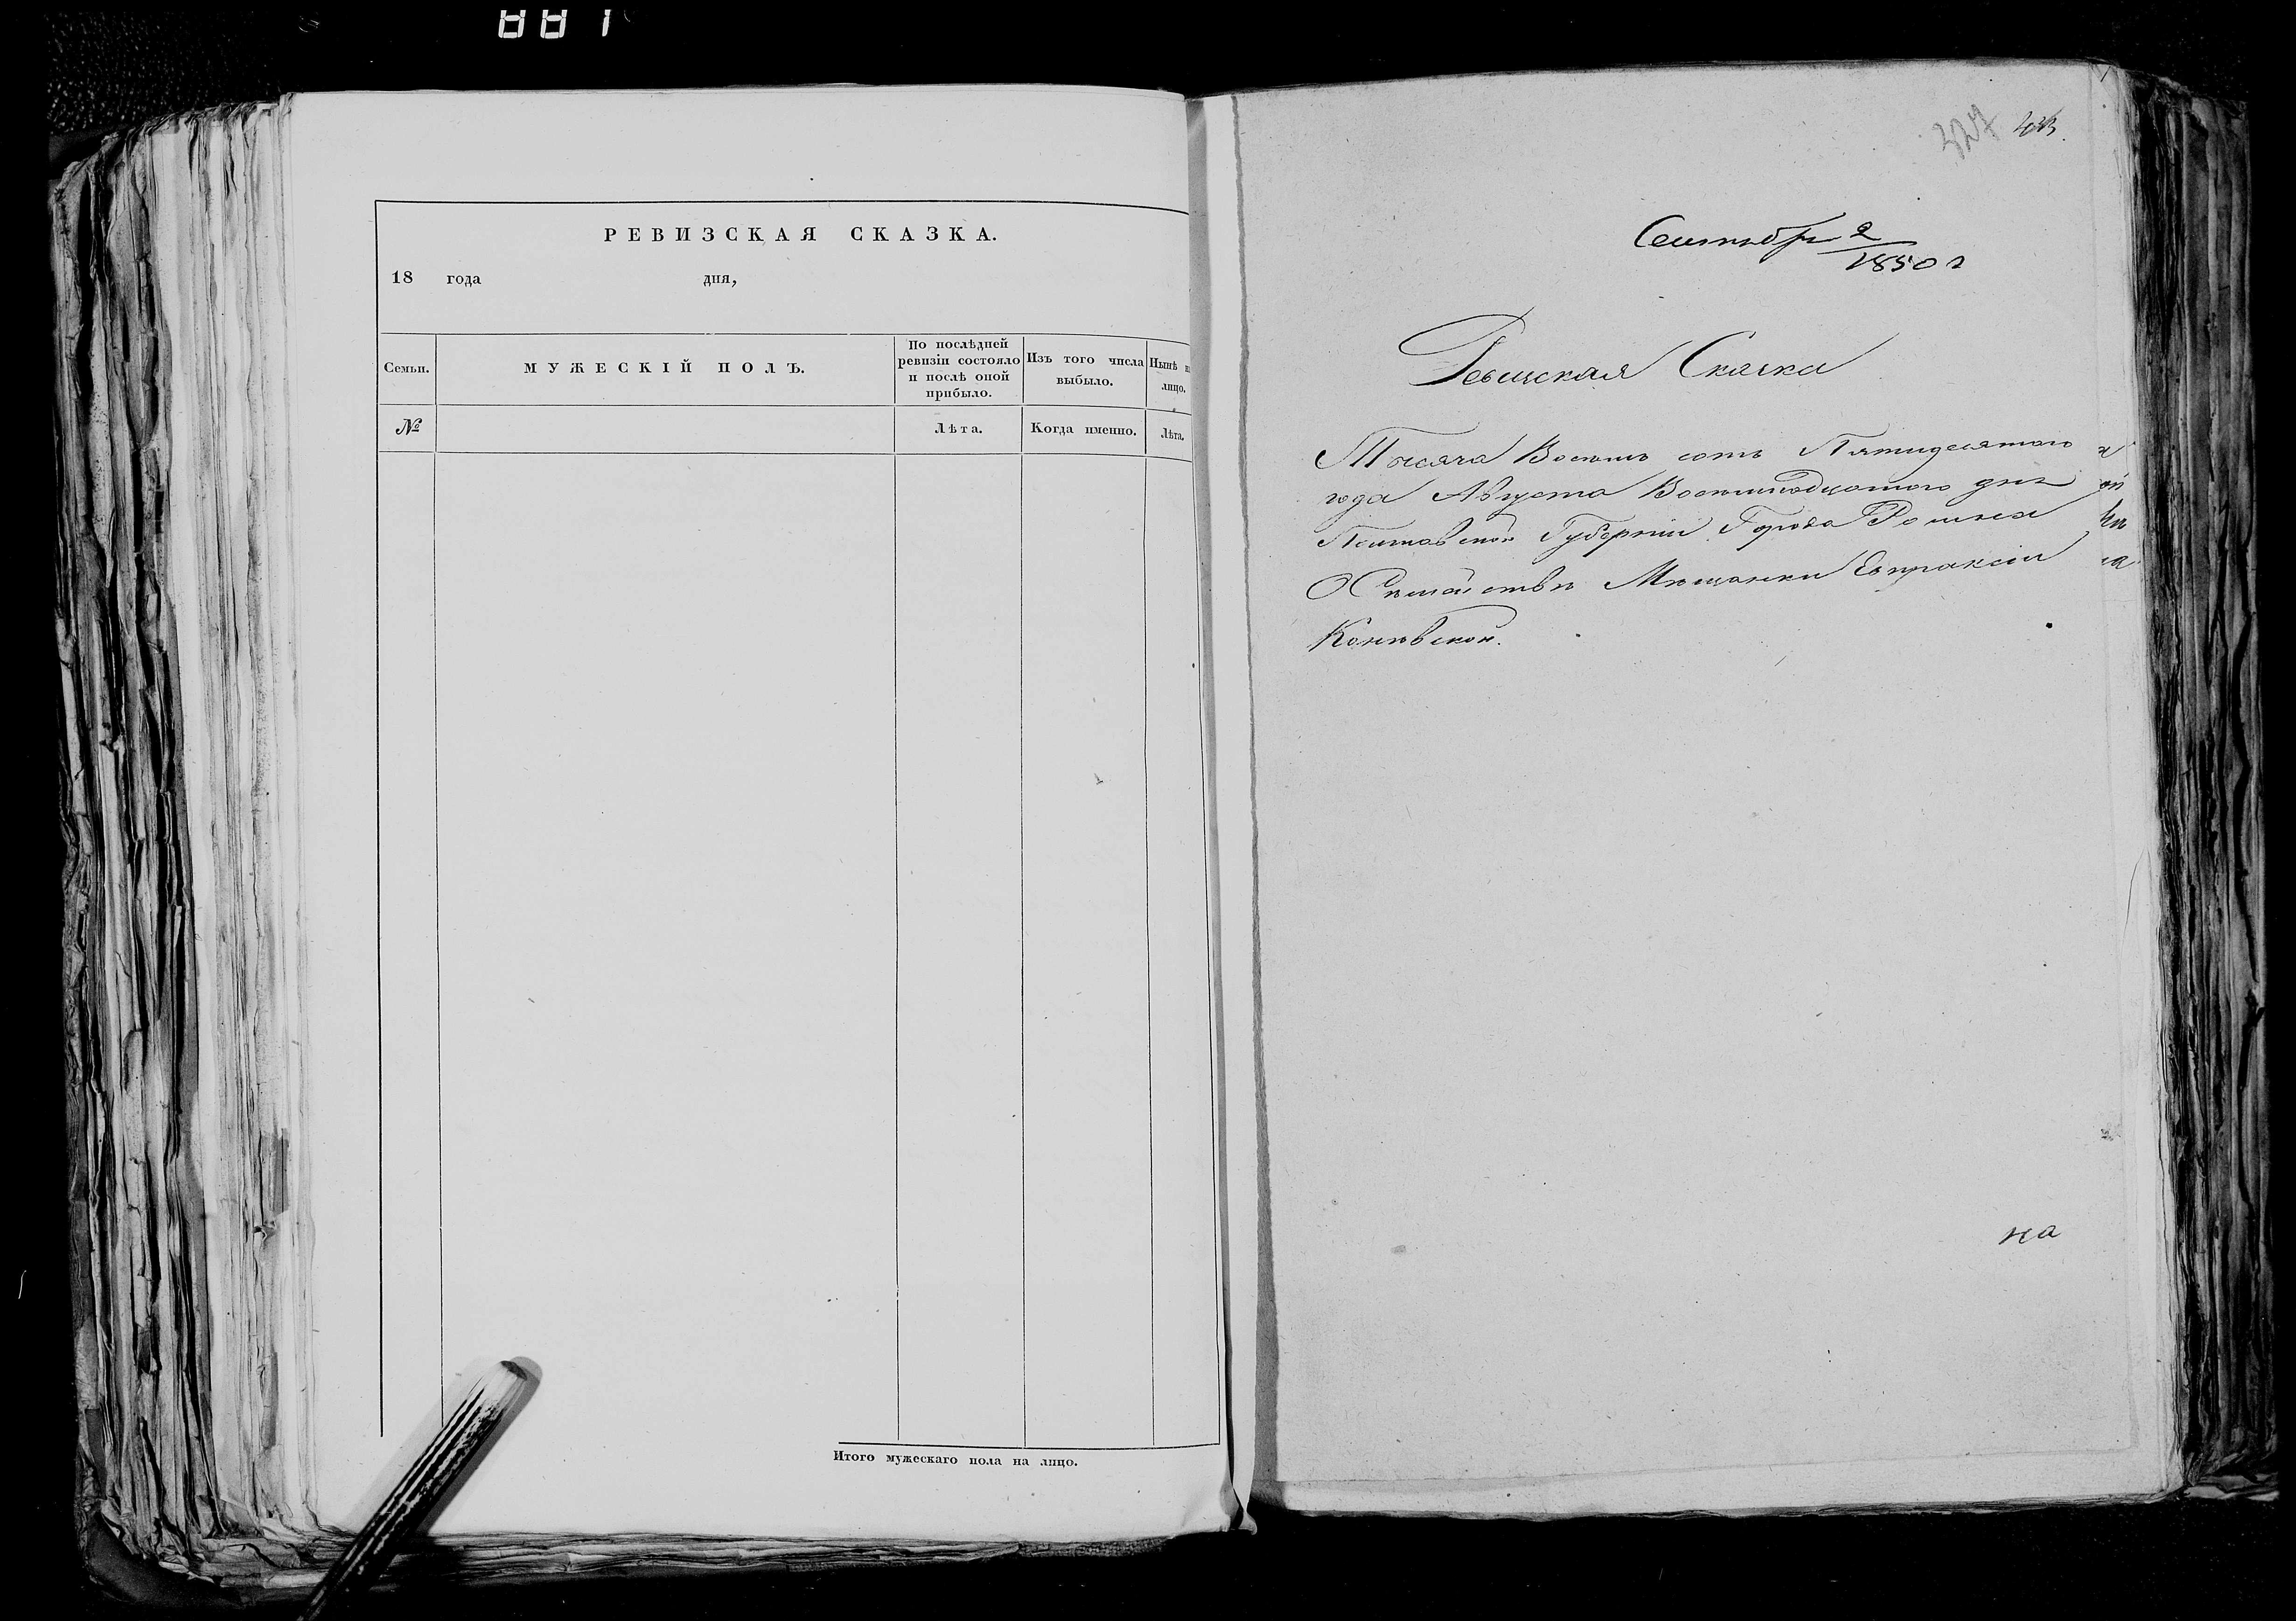 РЕВИЗСКАЯ СКАЗКА.
18 года дня,
Семьи.
МУЖЕСКІЙ ПОЛЪ.
По послѣдней
ревизіи состояло
и послѣ оной
прибыло.
Изъ того числа
выбыло.
Нынѣ н
лицо.
№
Лѣта.
Когда именно.
Лѣта.
Итого мужескаго пола на лицо.
427
Сентября 2
1850 г
Ревизская Сказка
Тысяча Восемь сотъ Пятидесятого
года Августа Восемнадцатого дня
Полтавской Губерніи Города Ромна
О Семействѣ Мѣщанки Евпраксіи
Коневской.
на